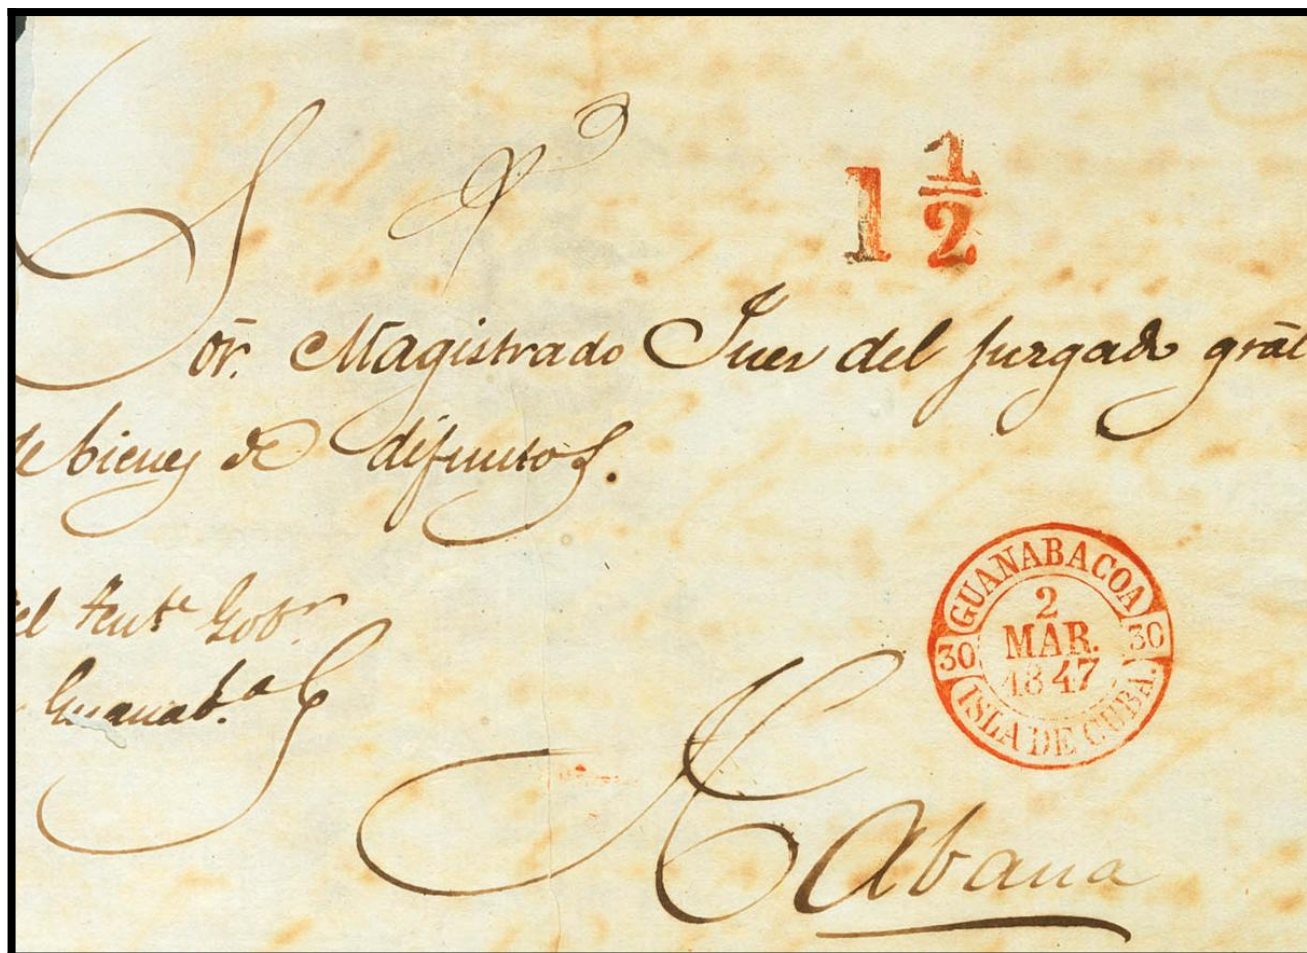 1 1/2
Sor. Magistrado Juez del Juzgado grāl
de bienes de difuntos.
el Tente Gobr
Guanab.a
GUANABACOA
2
MAR.
1847
30 30
ISLA DE CUBA.
Habana